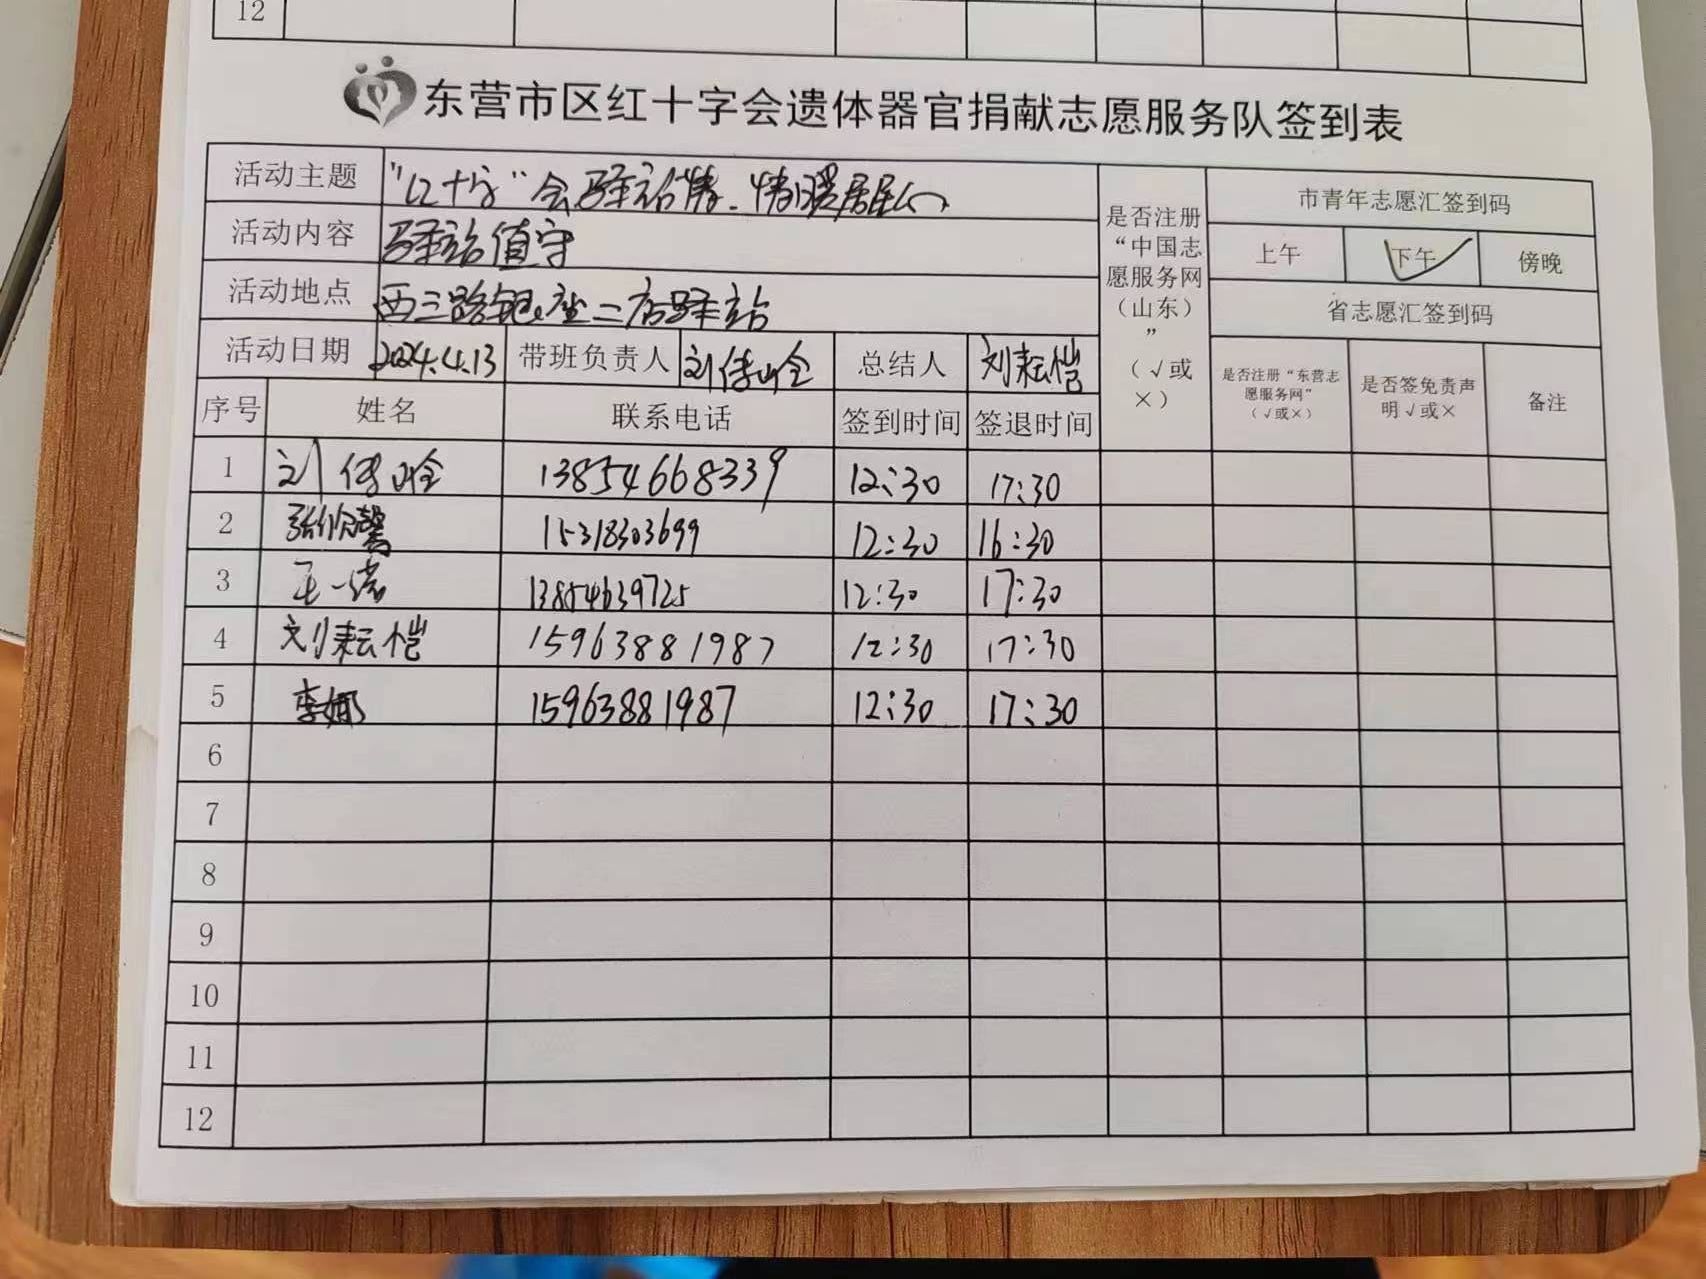 12
东营市区红十字会遗体器官捐献志愿服务队签到表
活动主题 "红十字"会驿站情、情暖居民心
活动内容 驿站值守
活动地点 西三路银座二店驿站
活动日期 2024.4.13 带班负责人 总结人 刘耘恺
是否注册“中国志愿服务网（山东）”（√或×）
市青年志愿汇签到码
上午 下午 ✓ 傍晚
省志愿汇签到码
是否注册“东营志愿服务网”（√或×） 是否签免责声明√或× 备注
序号 姓名 联系电话 签到时间 签退时间
1 13854668339 12:30 17:30
2 15318303699 12:30 16:30
3 王一诺 13854639725 12:30 17:30
4 刘耘恺 15963881987 12:30 17:30
5 李娜 15963881987 12:30 17:30
6
7
8
9
10
11
12